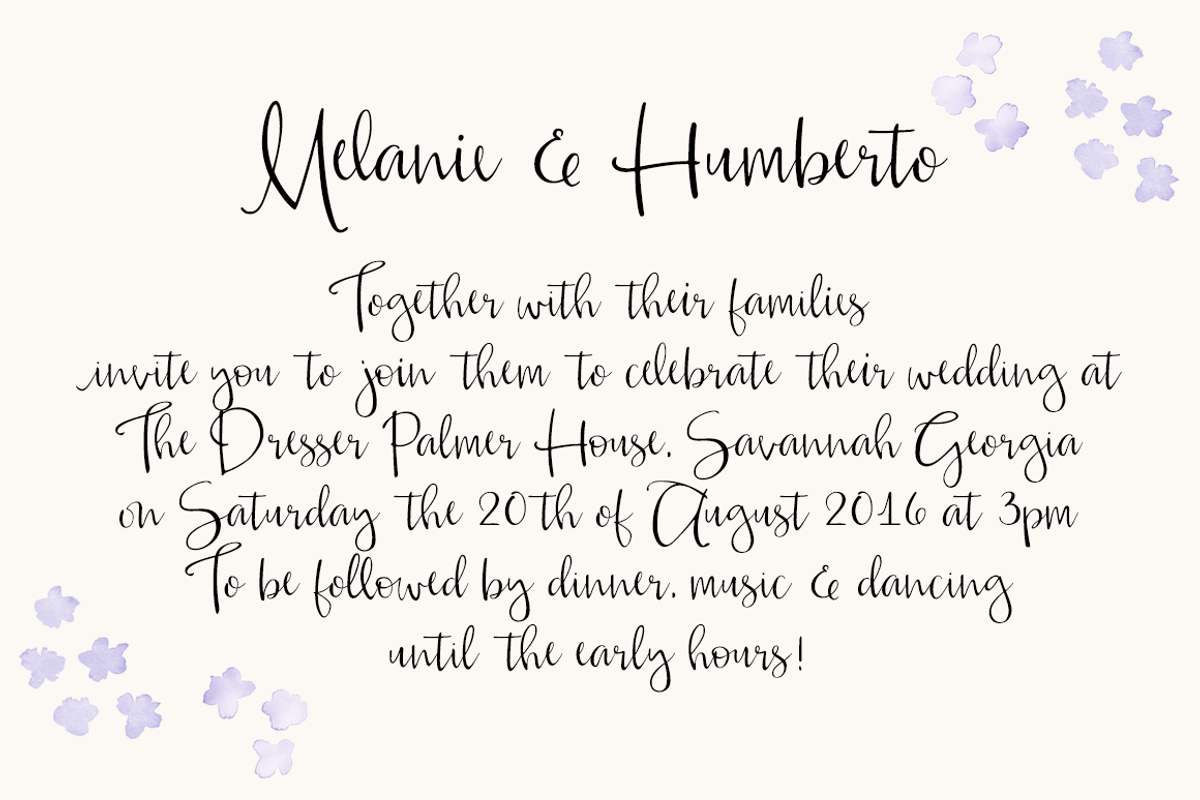 Melanie & Humberto
Together with their families
invite you to join them to celebrate their wedding at
The Dresser Palmer House, Savannah Georgia
on Saturday the 20th of August 2016 at 3pm
To be followed by dinner, music & dancing
until the early hours!